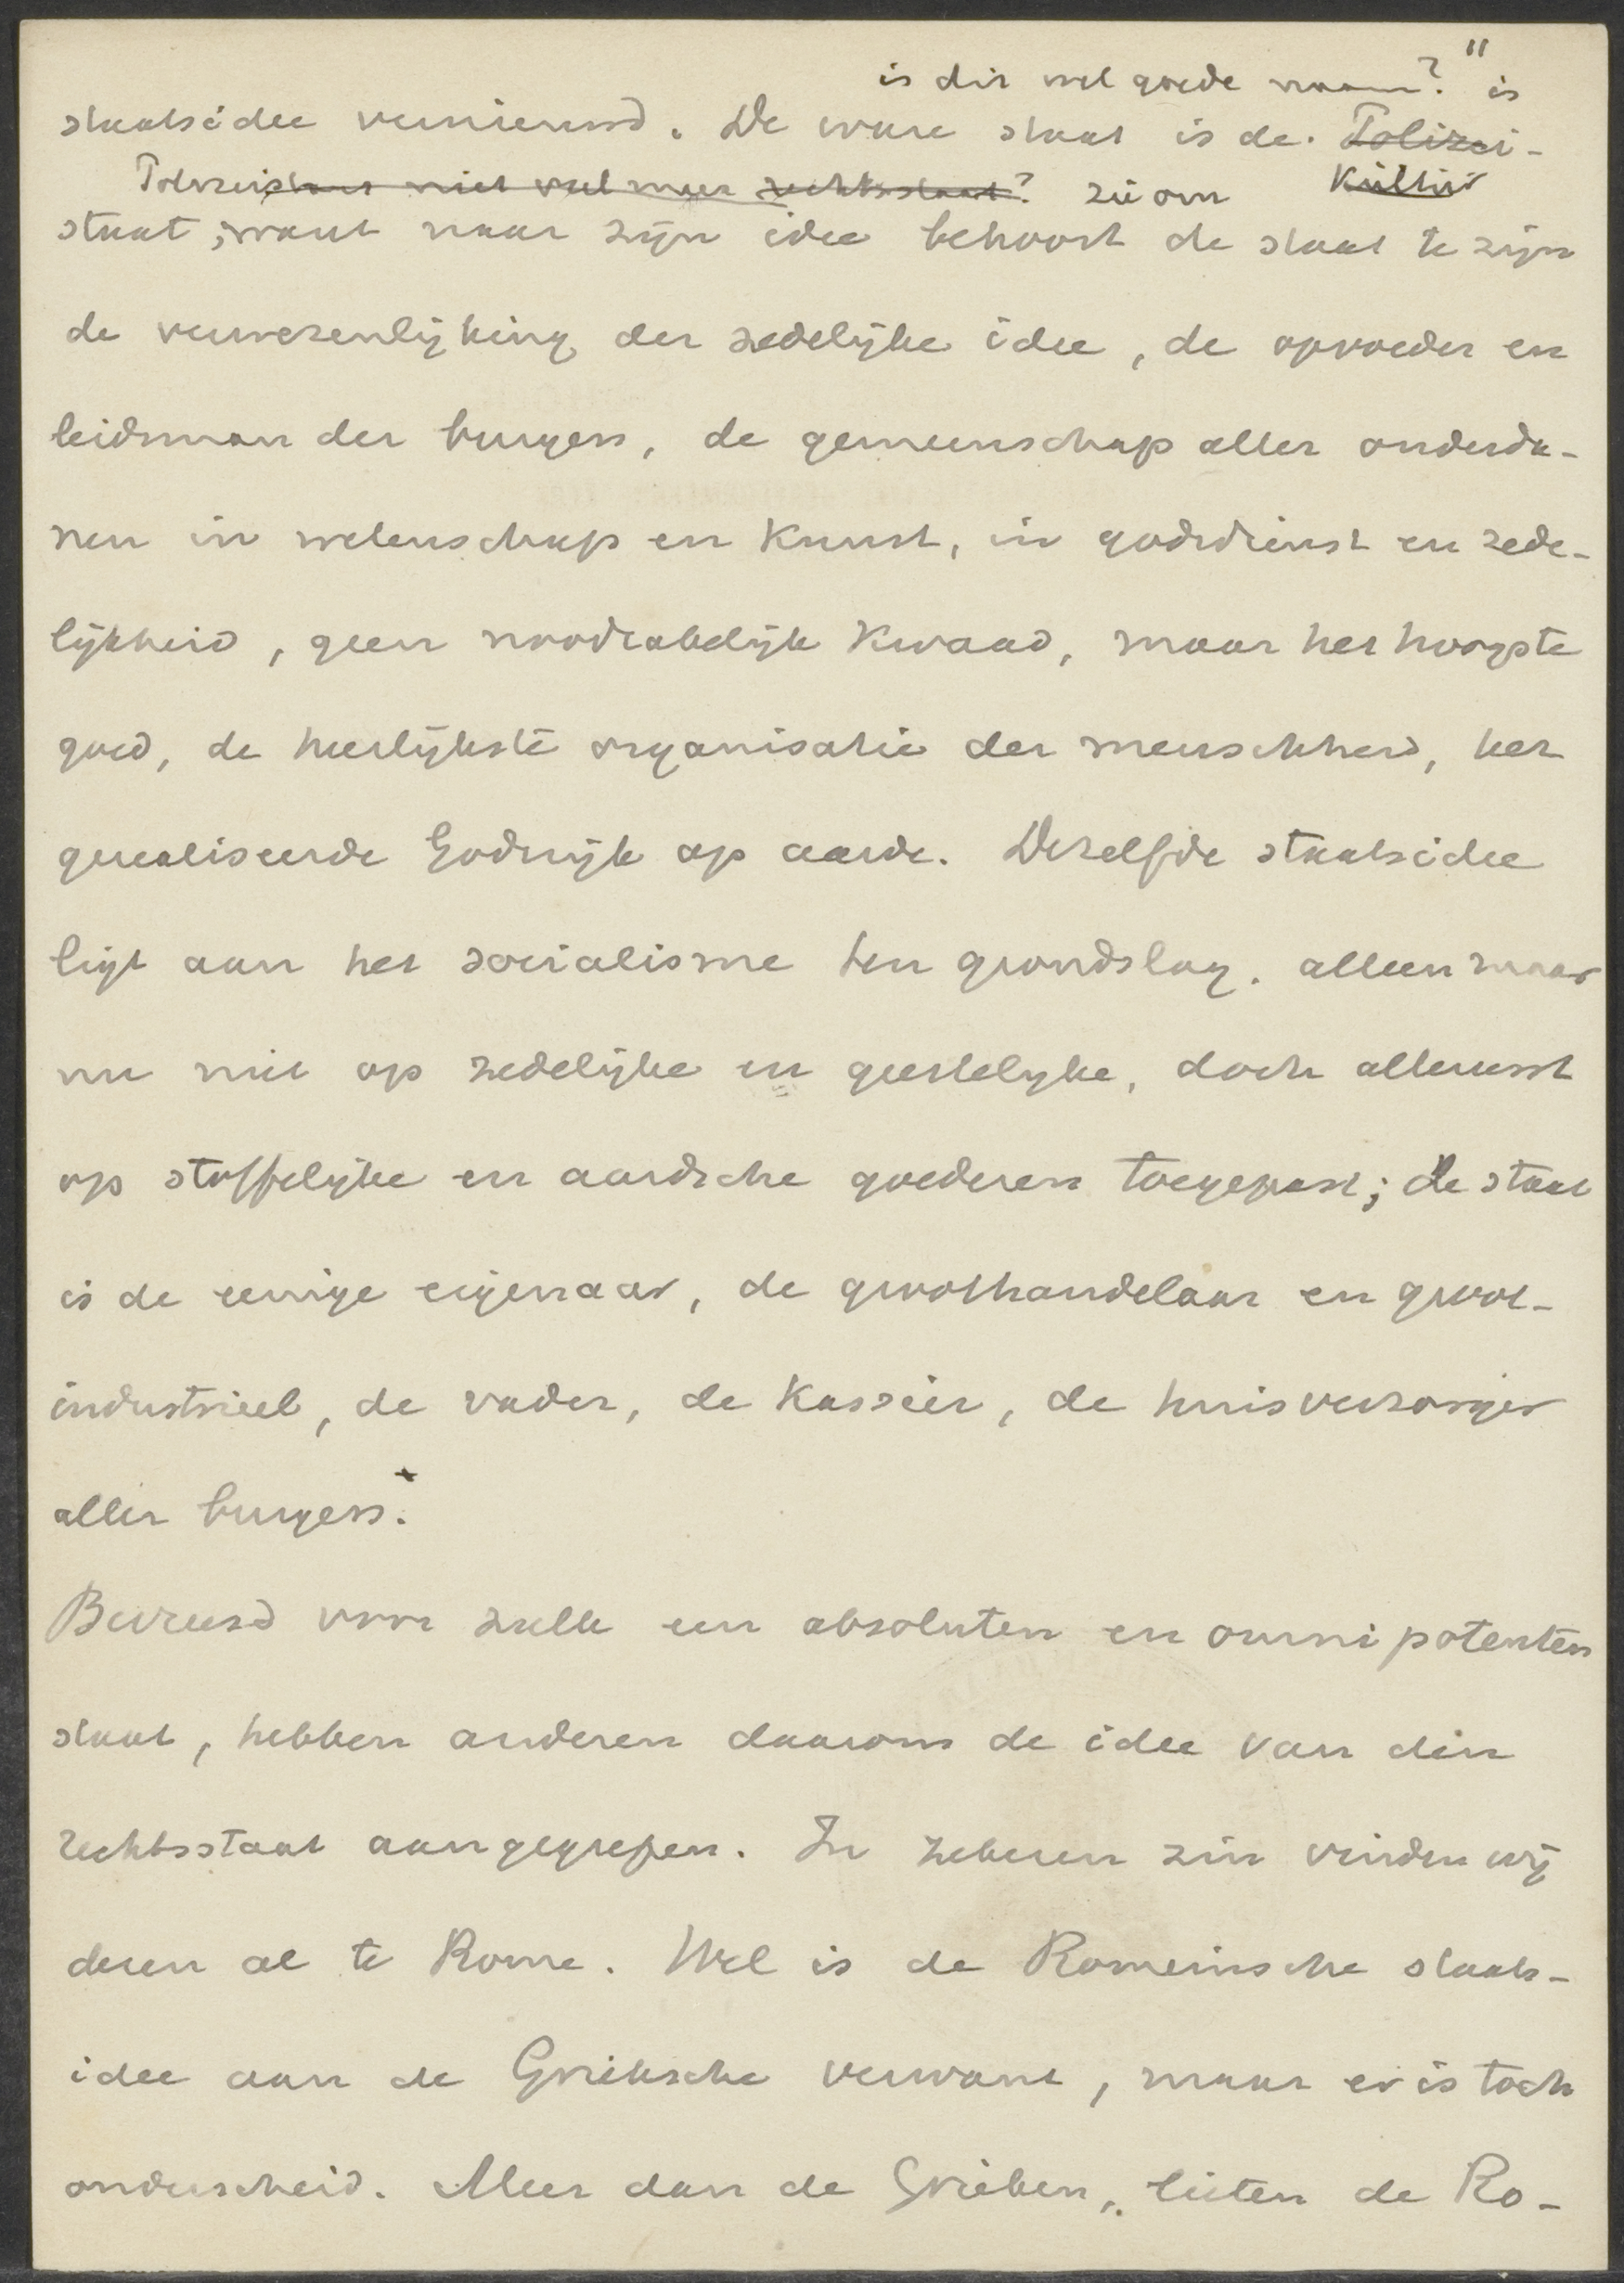 is dit wel goede naam? " is
staatsidee vernieuwd. De ware staat is de Polizei-
Polizeistaat niet veel meer rechtsstaat? zie om Kultur
staat, want naar zijn idee behoort de staat te zijn
de verwezenlijking der zedelijke idee, de opvoeder en
leidsman der burgers, de gemeenschap aller onderda-
nen in wetenschap en kunst, in godsdienst en zede-
lijkheid, geen noodzakelijk kwaad, maar het hoogste
goed, de heerlijkste organisatie der menschheid, het
gerealiseerde Godsrijk op aarde. Dezelfde staatsidee
ligt aan het socialisme ten grondslag. alleen maar
nu niet op zedelijke en geestelijke, doch allereerst
op stoffelijke en aardsche goederen toegepast; de staat
is de eenige eigenaar, de groothandelaar en groot-
industrieel, de vader, de kassier, de huisverzorger
aller burgers.
Bevreesd voor zulk een absoluten en omnipotenten
staat, hebben anderen daarom de idee van den
rechtsstaat aangegrepen. In zekeren zin vinden wij
dezen al te Rome. Wel is de Romeinsche staats-
idee aan de Grieksche verwant, maar er is toch
onderscheid. Meer dan de Grieken, lieten de Ro-